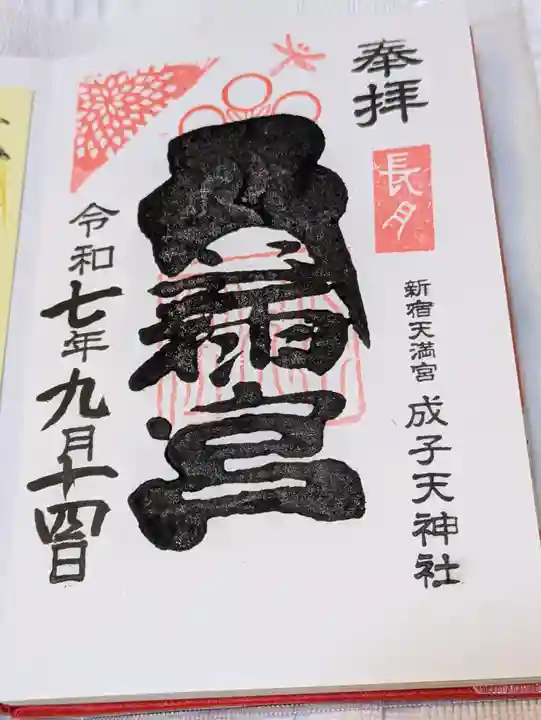 奉拝
長月
新宿天満宮 成子天神社
天満宮
令和七年九月十四日